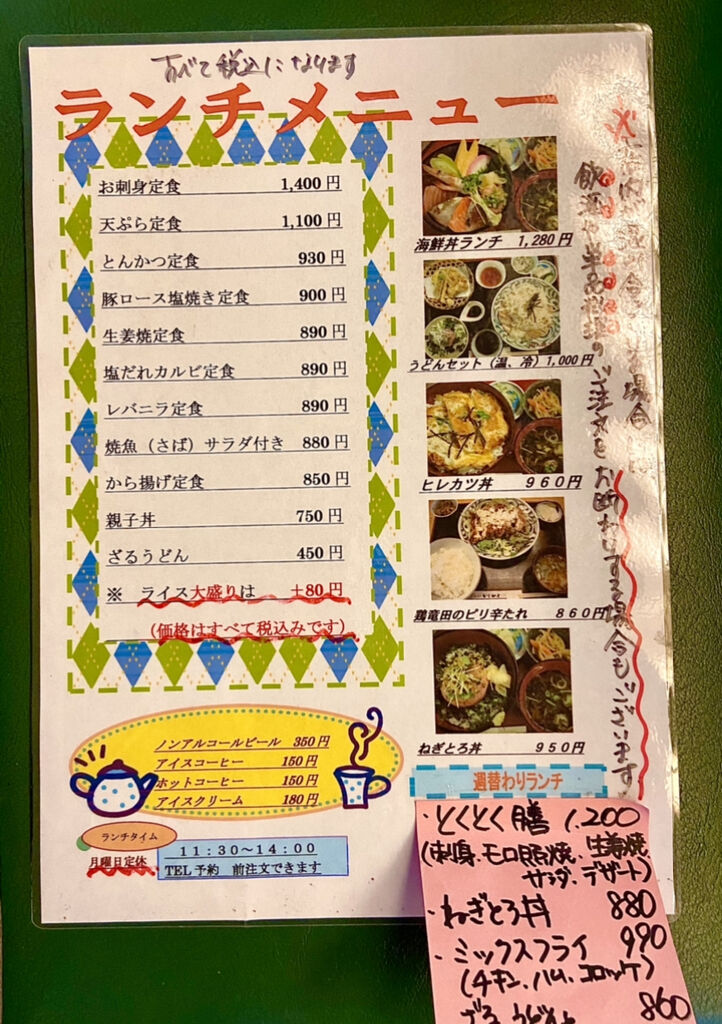 すべて税込になります
ランチメニュー
お刺身定食 1,400円
天ぷら定食 1,100円
とんかつ定食 930円
豚ロース塩焼き定食 900円
生姜焼定食 890円
塩だれカルビ定食 890円
レバニラ定食 890円
焼魚（さば）サラダ付き 880円
から揚げ定食 850円
親子丼 750円
ざるうどん 450円
※ ライス大盛りは ＋80円
（価格はすべて税込みです）
海鮮丼ランチ 1,280円
うどんセット（温、冷）1,000円
ヒレカツ丼 960円
鶏竜田のピリ辛たれ 860円
ねぎとろ丼 950円
ノンアルコールビール 350円
アイスコーヒー 150円
ホットコーヒー 150円
アイスクリーム 180円
ランチタイム
月曜日定休
11:30～14:00
TEL予約 前注文できます
週替わりランチ
・とくとく膳 1,200
(刺身、モロ照焼、生姜焼、
サラダ、デザート)
・ねぎとろ丼 880
・ミックスフライ 990
(チキン、ハム、コロッケ)
ざるうどん 860
店内 場合は
飲酒や単品料理のご注文をお断わりする場合もございます